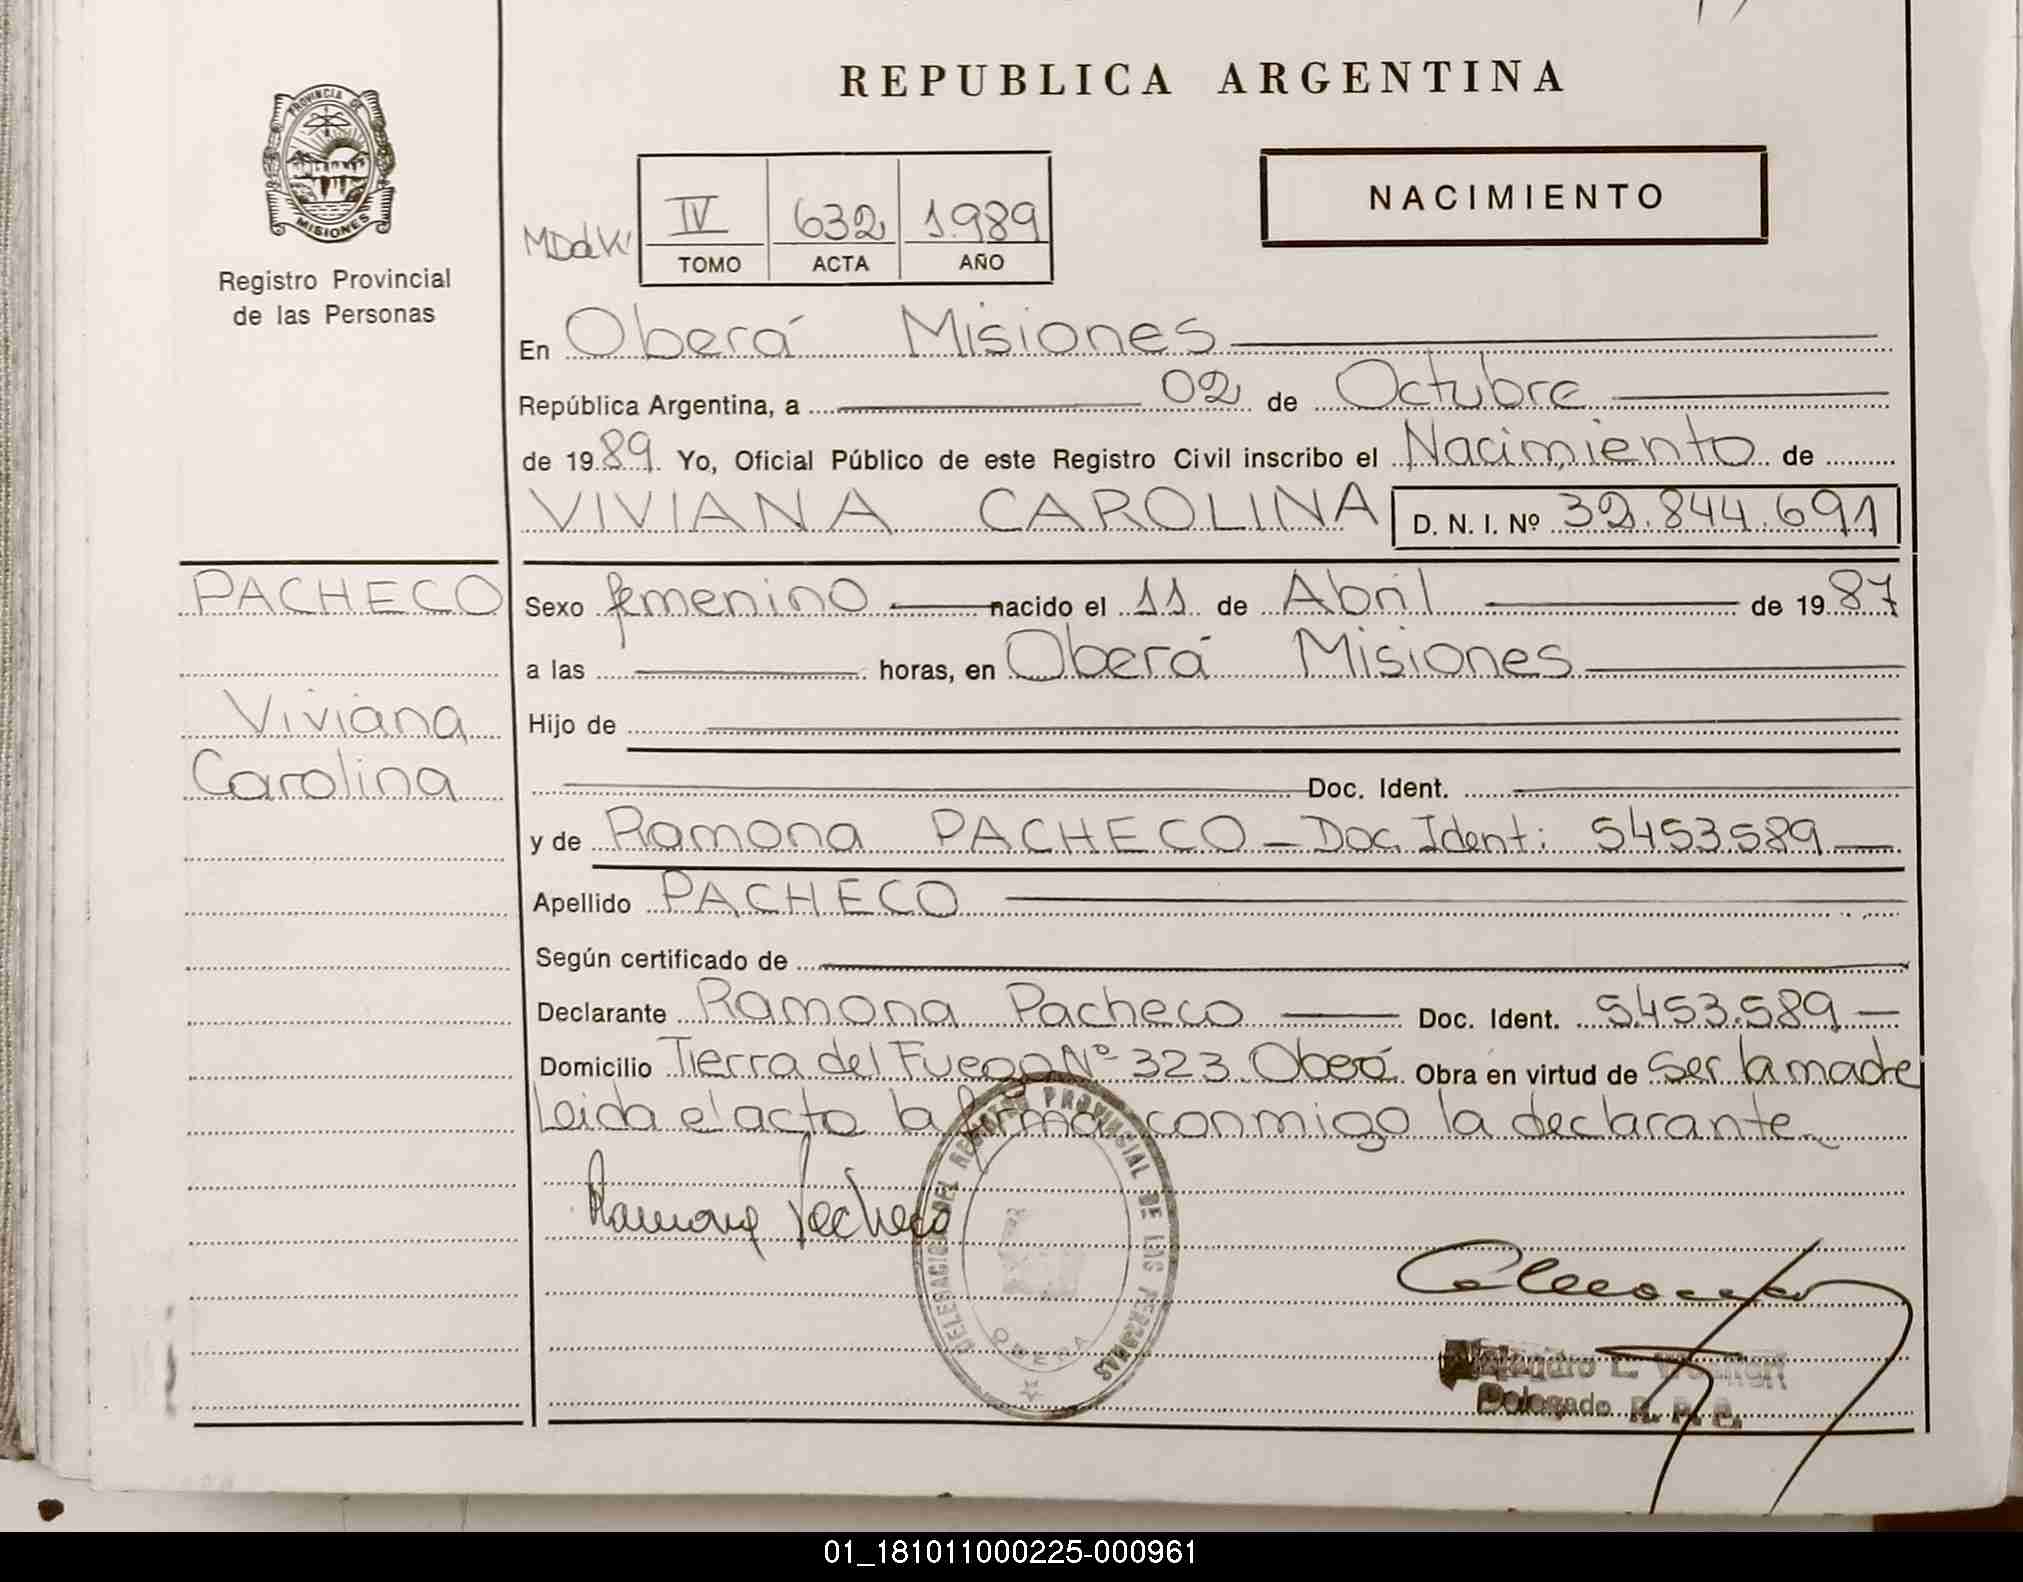 REPUBLICA ARGENTINA
PROVINCIA DE MISIONES
Registro Provincial
de las Personas
NACIMIENTO
IV 632 1.989
TOMO ACTA AÑO
En Oberá Misiones
República Argentina, a 02 de Octubre
de 1989. Yo, Oficial Público de este Registro Civil inscribo el Nacimiento de
VIVIANA CAROLINA D. N. I. Nº 32.844.691
PACHECO
Viviana
Carolina
Sexo femenino nacido el 11 de Abril de 1987
a las horas, en Oberá Misiones
Hijo de
Doc. Ident.
y de Ramona PACHECO - Doc. Ident: 5453.589
Apellido PACHECO
Según certificado de
Declarante Ramona Pacheco Doc. Ident. 5.453.589
Domicilio Tierra del Fuego Nº 323 Oberá Obra en virtud de ser la madre
Leida el acto la firma conmigo la declarante
Ramona Pacheco
DELEGACION DEL REGISTRO PROVINCIAL DE LAS PERSONAS
OBERA
Delegado R. P. P.
01_181011000225-000961